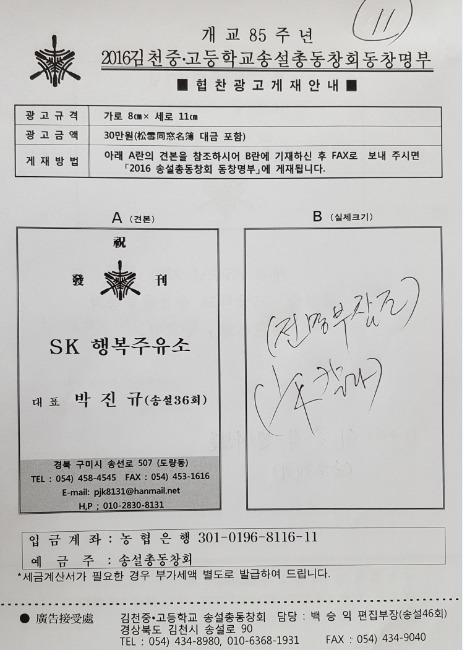 11
개교 85주년
2016김천중·고등학교송설총동창회동창명부
■ 협찬광고게재안내 ■
광고규격 가로 8㎝× 세로 11㎝
광고금액 30만원(松雪同窓名簿 대금 포함)
게재방법 아래 A란의 견본을 참조하시어 B란에 기재하신 후 FAX로 보내 주시면
「2016 송설총동창회 동창명부」에 게재됩니다.
A (견본)
祝
發 刊
SK 행복주유소
대표 박진규(송설36회)
경북 구미시 송선로 507 (도량동)
TEL : 054) 458-4545 FAX : 054) 453-1616
E-mail: pjk8131@hanmail.net
H,P ; 010-2830-8131
B (실제크기)
(전명부참조)
입금계좌 : 농협은행 301-0196-8116-11
예금주 : 송설총동창회
*세금계산서가 필요한 경우 부가세액 별도로 발급하여 드립니다.
● 廣告接受處 김천중·고등학교 송설총동창회 담당 : 백승익 편집부장(송설46회)
경상북도 김천시 송설로 90
TEL : 054) 434-8980, 010-6368-1931 FAX : 054) 434-9040